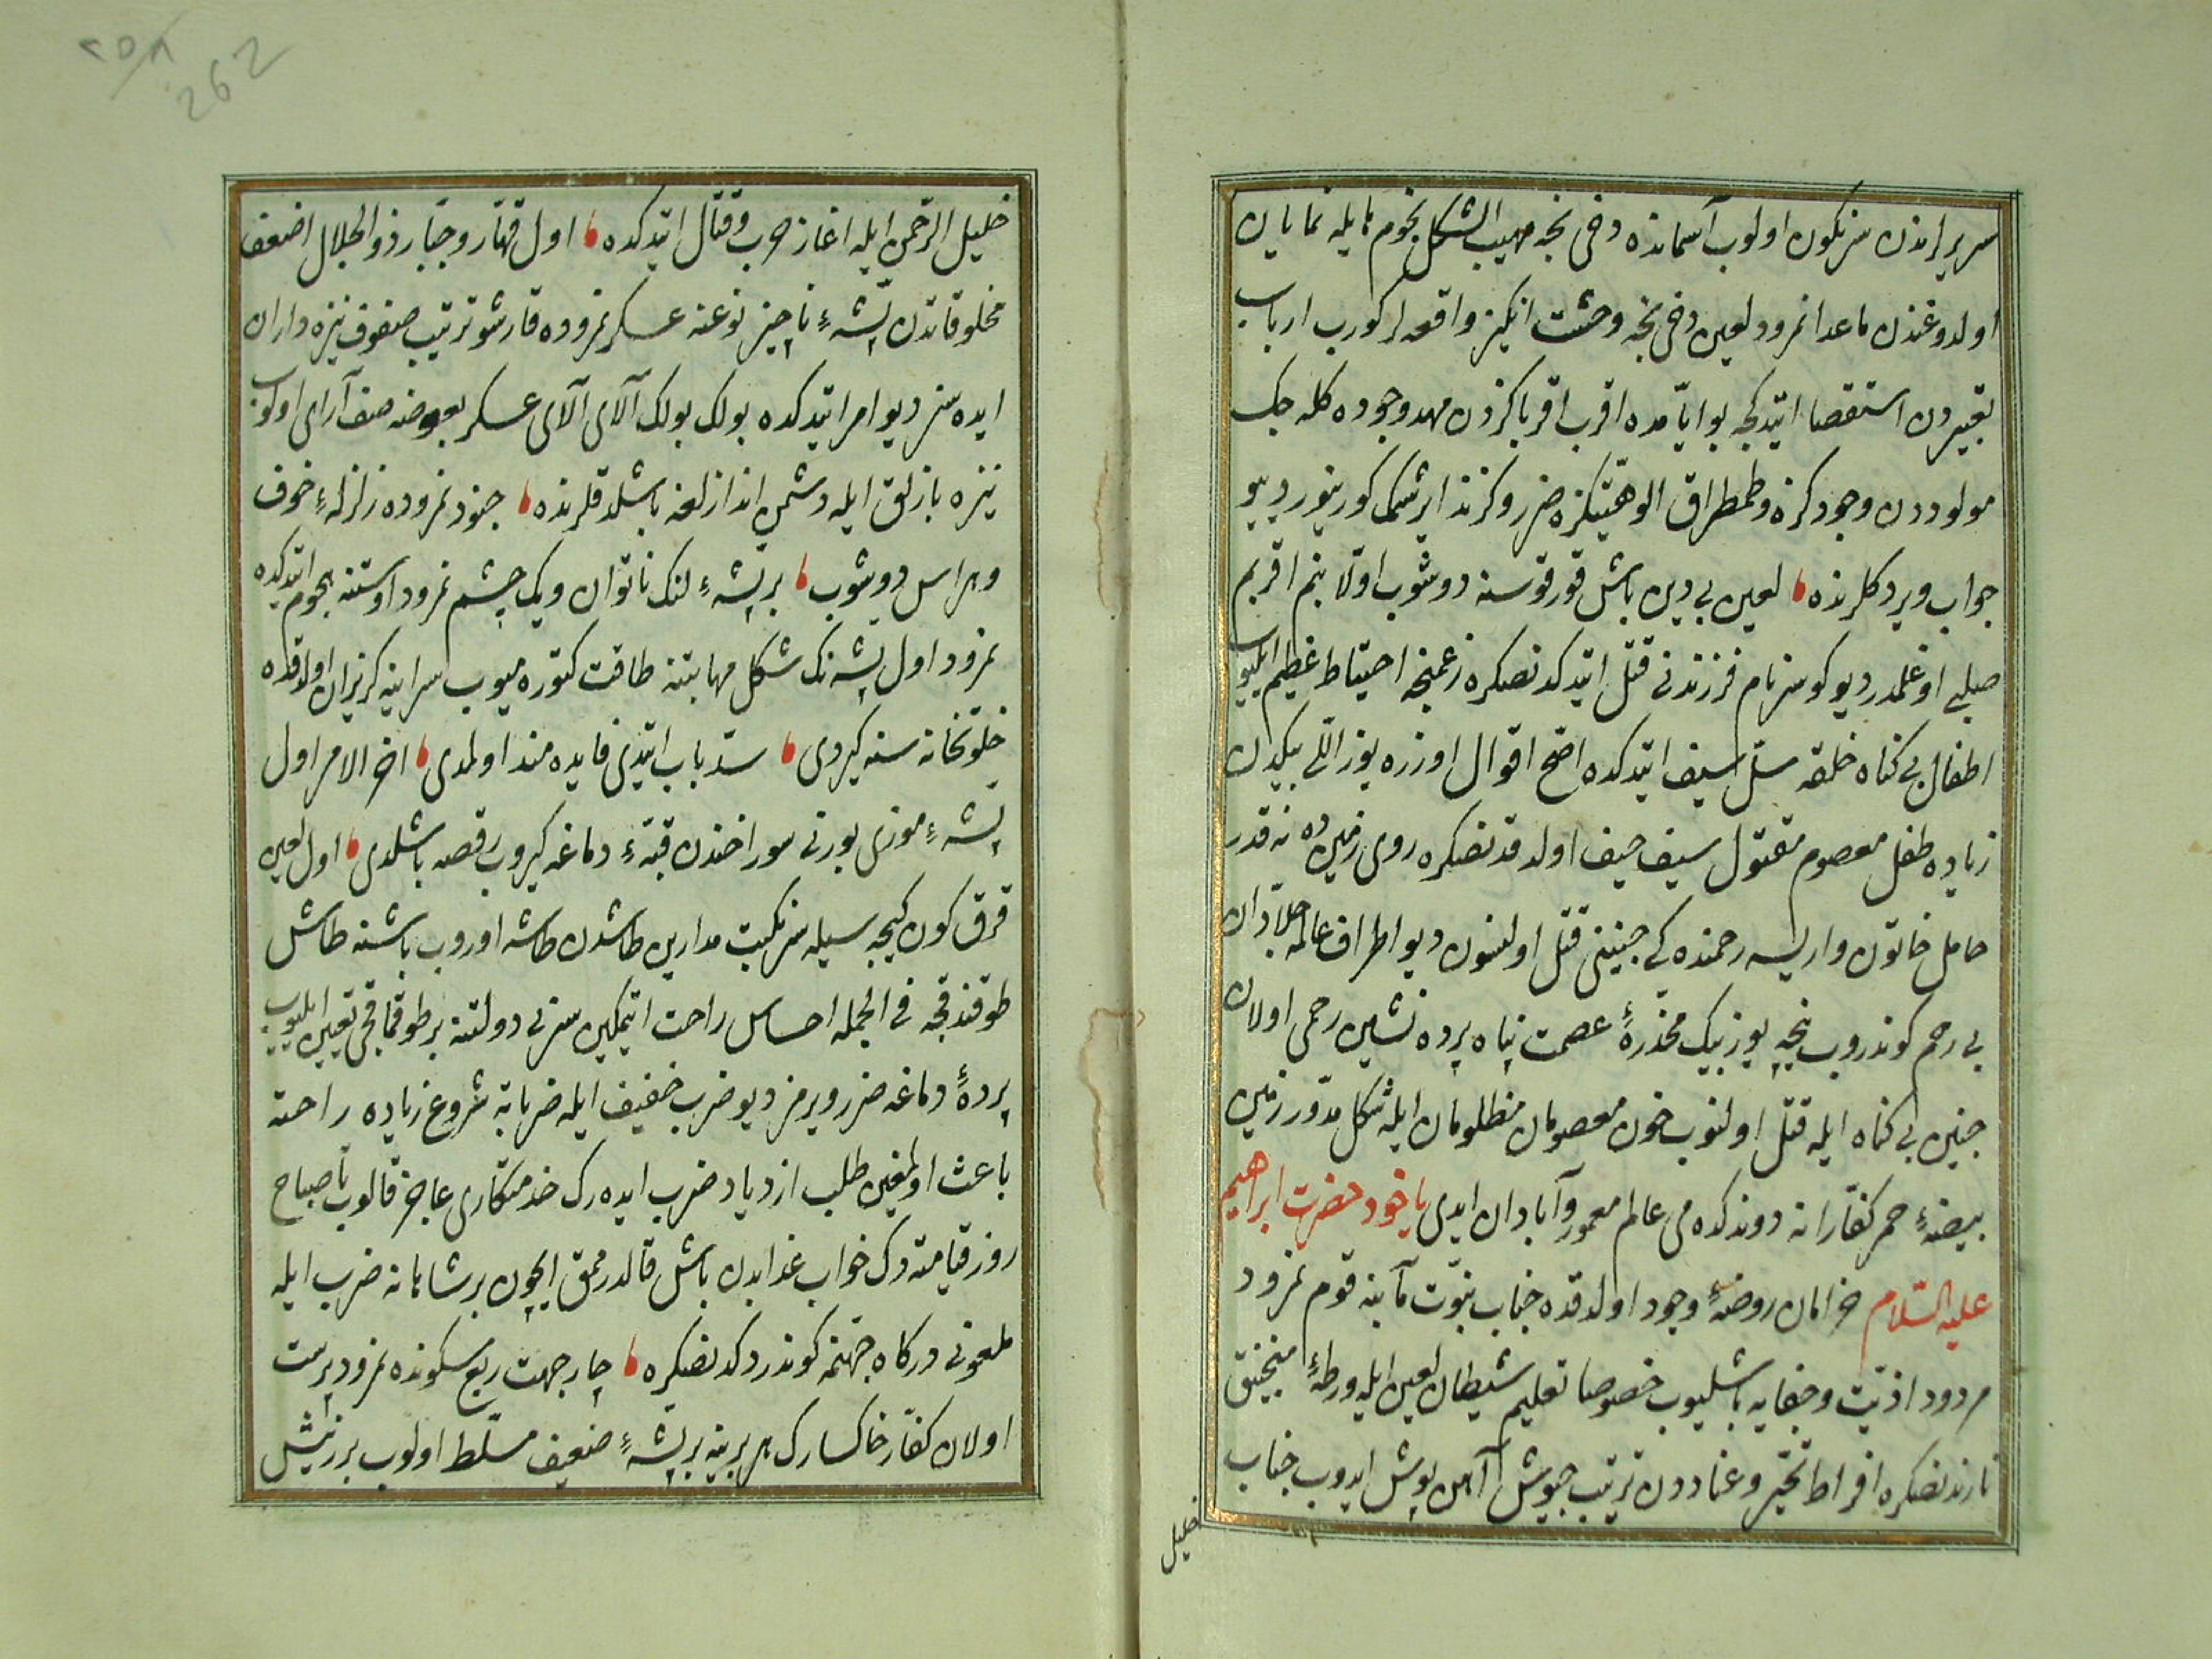 سریرلرندن سرنکون اولوب آسمانده دخی نجه مهیب الشکل نجوم نایله نمایان
اولدوغندن ماعدا نمرود لعین دخی نجه وحشت انکیز واقعه لر کورب ارباب
تعبیردن استقصا ایتدکجه بو ایّامده اقرب اقرباکزدن مهد وجوده کله جک
مولوددن وجودکزه وطمطراق الوهیتکزه ضرر وکزند ایرشمک کورینور دیو
جواب ویردکلرنده لعین بی دین باش قورقوسنه دوشوب اوّلا بنم اقربم
صلبی اوغلمدر دیو کوسز نام فرزندنی قتل ایتدکدنصکره زعمنجه احتیاط عظیم ایلیوب
اطفال بی کناه خلقه سلّ سیف ایتدکده اصّح اقوال اوزره یوز اللی بیکدن
زیاده طفل معصوم مقتول سیف حیف اولدقدنصکره روی زمینده نه قدر
حامل خاتون واریسه رحمنده کی جنینی قتل اولنسون دیو اطراف عالمه جلّادان
بی رحم کوندروب نیجه یوز بیک مخدّرهٔ عصمت پناه پرده نشین رحمی اولان
جنین بی کناه ایله قتل اولنوب خون معصومان مظلومان ایله شکل مدوّر زمین
بیضهٔ حمر کفّارانه دوندکده می عالم معمور وآبادان ایدی یاخود حضرت ابراهیم
علیه السّلام خرامان روضهٔ وجود اولدقده جناب نبوّت مآبنه قوم نمرود
مردود اذیّت وجفایه باشلیوب خصوصا تعلیم شیطان لعین ایله ورطهٔ منجنیق
ناردنصکره افراط تجبّر وعناددن ترتیب جیوش آهن پوش ایدوب جناب
خلیل
خلیل الرّحمن ایله اغاز حرب وقتال ایتدکده اول قهّار وجبّار ذو الجلال اضعف
مخلوقاتدن پشّهٔ ناچیز نوعنه عسکر نمروده قارشو ترتیب صفوف نیزه داران
ایده سز دیو امر ایتدکده بولک بولک آلای آلای عسکر بعوضه صف آرای اولوب
نیزه بازلق ایله دشمن اندازلغه باشلدقلرنده جنود نمروده زلزلهٔ خوف
وهراس دوشوب بر پشّهٔ لنک ناتوان ویک چشم نمرود اوستنه هجوم ایتدکده
نمرود اول پشّه نک شکل مهابتنه طاقت کتوره میوب سراینه کریزان اولدقده
خلوتخانه سنه کیردی سدّ باب ایتدی فایده مند اولمدی اخر الامر اول
پشّهٔ موذی بورنی سوراخندن قبّهٔ دماغه کیروب رقصه باشلدی اول لعین
قرق کون کیجه سیله سرنکبت مدارین طاشدن طاشه اوروب باشنه طاش
طوقندقجه فی الجمله احساس راحت ایتمکین سر بی دولتنه بر طوقماقجی تعیین ایلیوب
پردهٔ دماغه ضرر ویرمز دیو ضرب خفیف ایله ضربانه شروع زیاده راحته
باعث اولمغین طلب ازدیاد ضرب ایده رک خدمتکاری عاجز قالوب تا صباح
روز قیامته دک خواب غدابدن باش قالدرممق ایچون بر شاهانه ضرب ایله
ملعونی درکاه جهنّمه کوندردکدنصکره چار جهت ربع مسکونده نمرود پرست
اولان کفّار خاکسارک هر برینه بر پشّهٔ ضعیف مسلّط اولوب بر زنیش
262